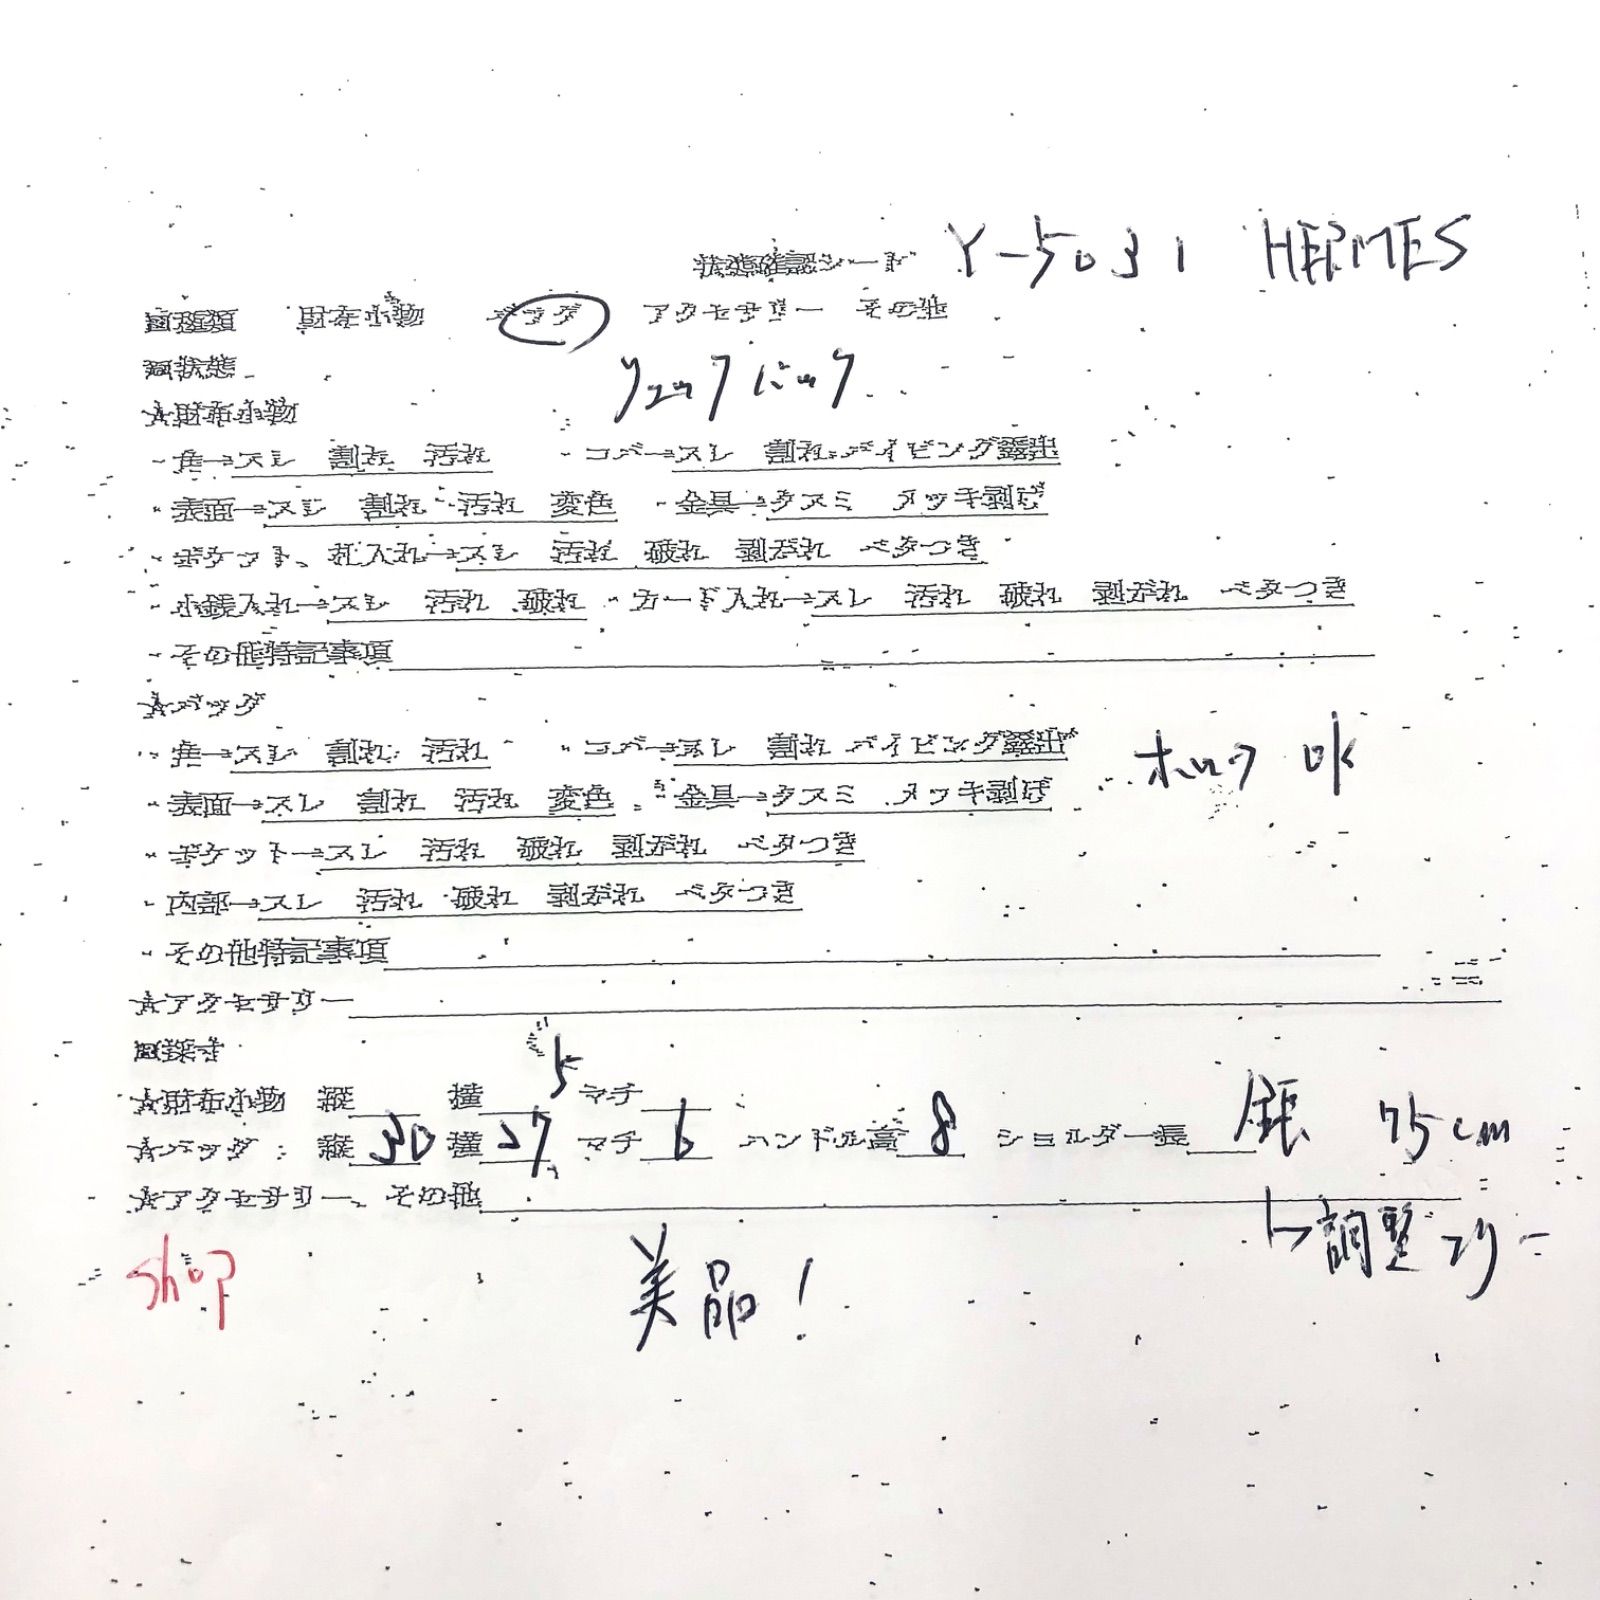 状態確認シート Y-5031 HERMES
■種類 財布小物 バッグ アクセサリー その他
■状態 リュックバック
★財布小物
・角→スレ 割れ 汚れ ・コバ→スレ 割れ パイピング露出
・表面→スレ 割れ 汚れ 変色 ・金具→クスミ メッキ剥げ
・ポケット、札入れ→スレ 汚れ 破れ 剥がれ ベタつき
・小銭入れ→スレ 汚れ 破れ ・カード入れ→スレ 汚れ 破れ 剥がれ ベタつき
・その他特記事項
★バッグ
・角→スレ 割れ 汚れ ・コバ→スレ 割れ パイピング露出 ホック OK
・表面→スレ 割れ 汚れ 変色 ・金具→クスミ メッキ剥げ
・ポケット→スレ 汚れ 破れ 剥がれ ベタつき
・内部→スレ 汚れ 破れ 剥がれ ベタつき
・その他特記事項
★アクセサリー
■採寸
5
★財布小物 縦 横 マチ
★バッグ : 縦 30 横 27 マチ 6 ハンドル高 8 ショルダー長 75cm
★アクセサリー、その他
調整フリー
shop 美品!